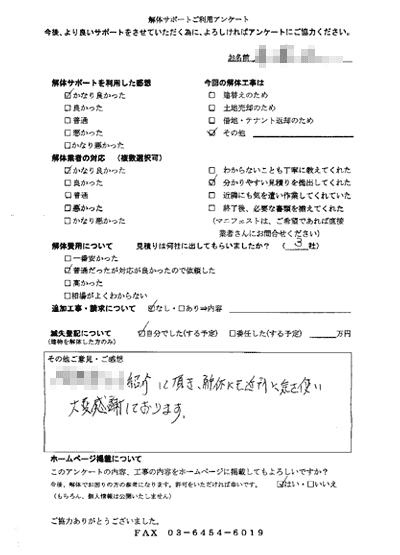 解体サポートご利用アンケート
今後、より良いサポートをさせていただく為に、よろしければアンケートにご協力ください。
お名前
解体サポートを利用した感想
☑かなり良かった
□良かった
□普通
□悪かった
□かなり悪かった
今回の解体工事は
□ 建替えのため
□ 土地売却のため
□ 借地・テナント返却のため
☑ その他
解体業者の対応 (複数選択可)
☑かなり良かった
□良かった
□普通
□悪かった
□かなり悪かった
□ わからないことも丁寧に教えてくれた
☑ 分かりやすい見積りを提出してくれた
□ 近隣にも気を遣い作業してくれていた
□ 終了後、必要な書類を揃えてくれた
(マニフェストは、ご希望であれば直接
業者さんにお問合せください)
解体費用について 見積りは何社に出してもらいましたか? ( 3 社)
□一番安かった
☑普通だったが対応が良かったので依頼した
□高かった
□相場がよくわからない
追加工事・請求について ☑なし・□あり⇒内容
滅失登記について ☑自分でした(する予定) □委任した(する予定) 万円
(建物を解体した方のみ)
その他ご意見・ご感想
紹介して頂き、解体にも近所に気を使い
大変感謝しております。
ホームページ掲載について
このアンケートの内容、工事の内容をホームページに掲載してもよろしいですか?
今後、解体でお困りの方の参考になります。許可をいただければ幸いです。 ☑はい・□いいえ
(もちろん、個人情報は公開いたしません)
ご協力ありがとうございました。
FAX 03-6454-6019